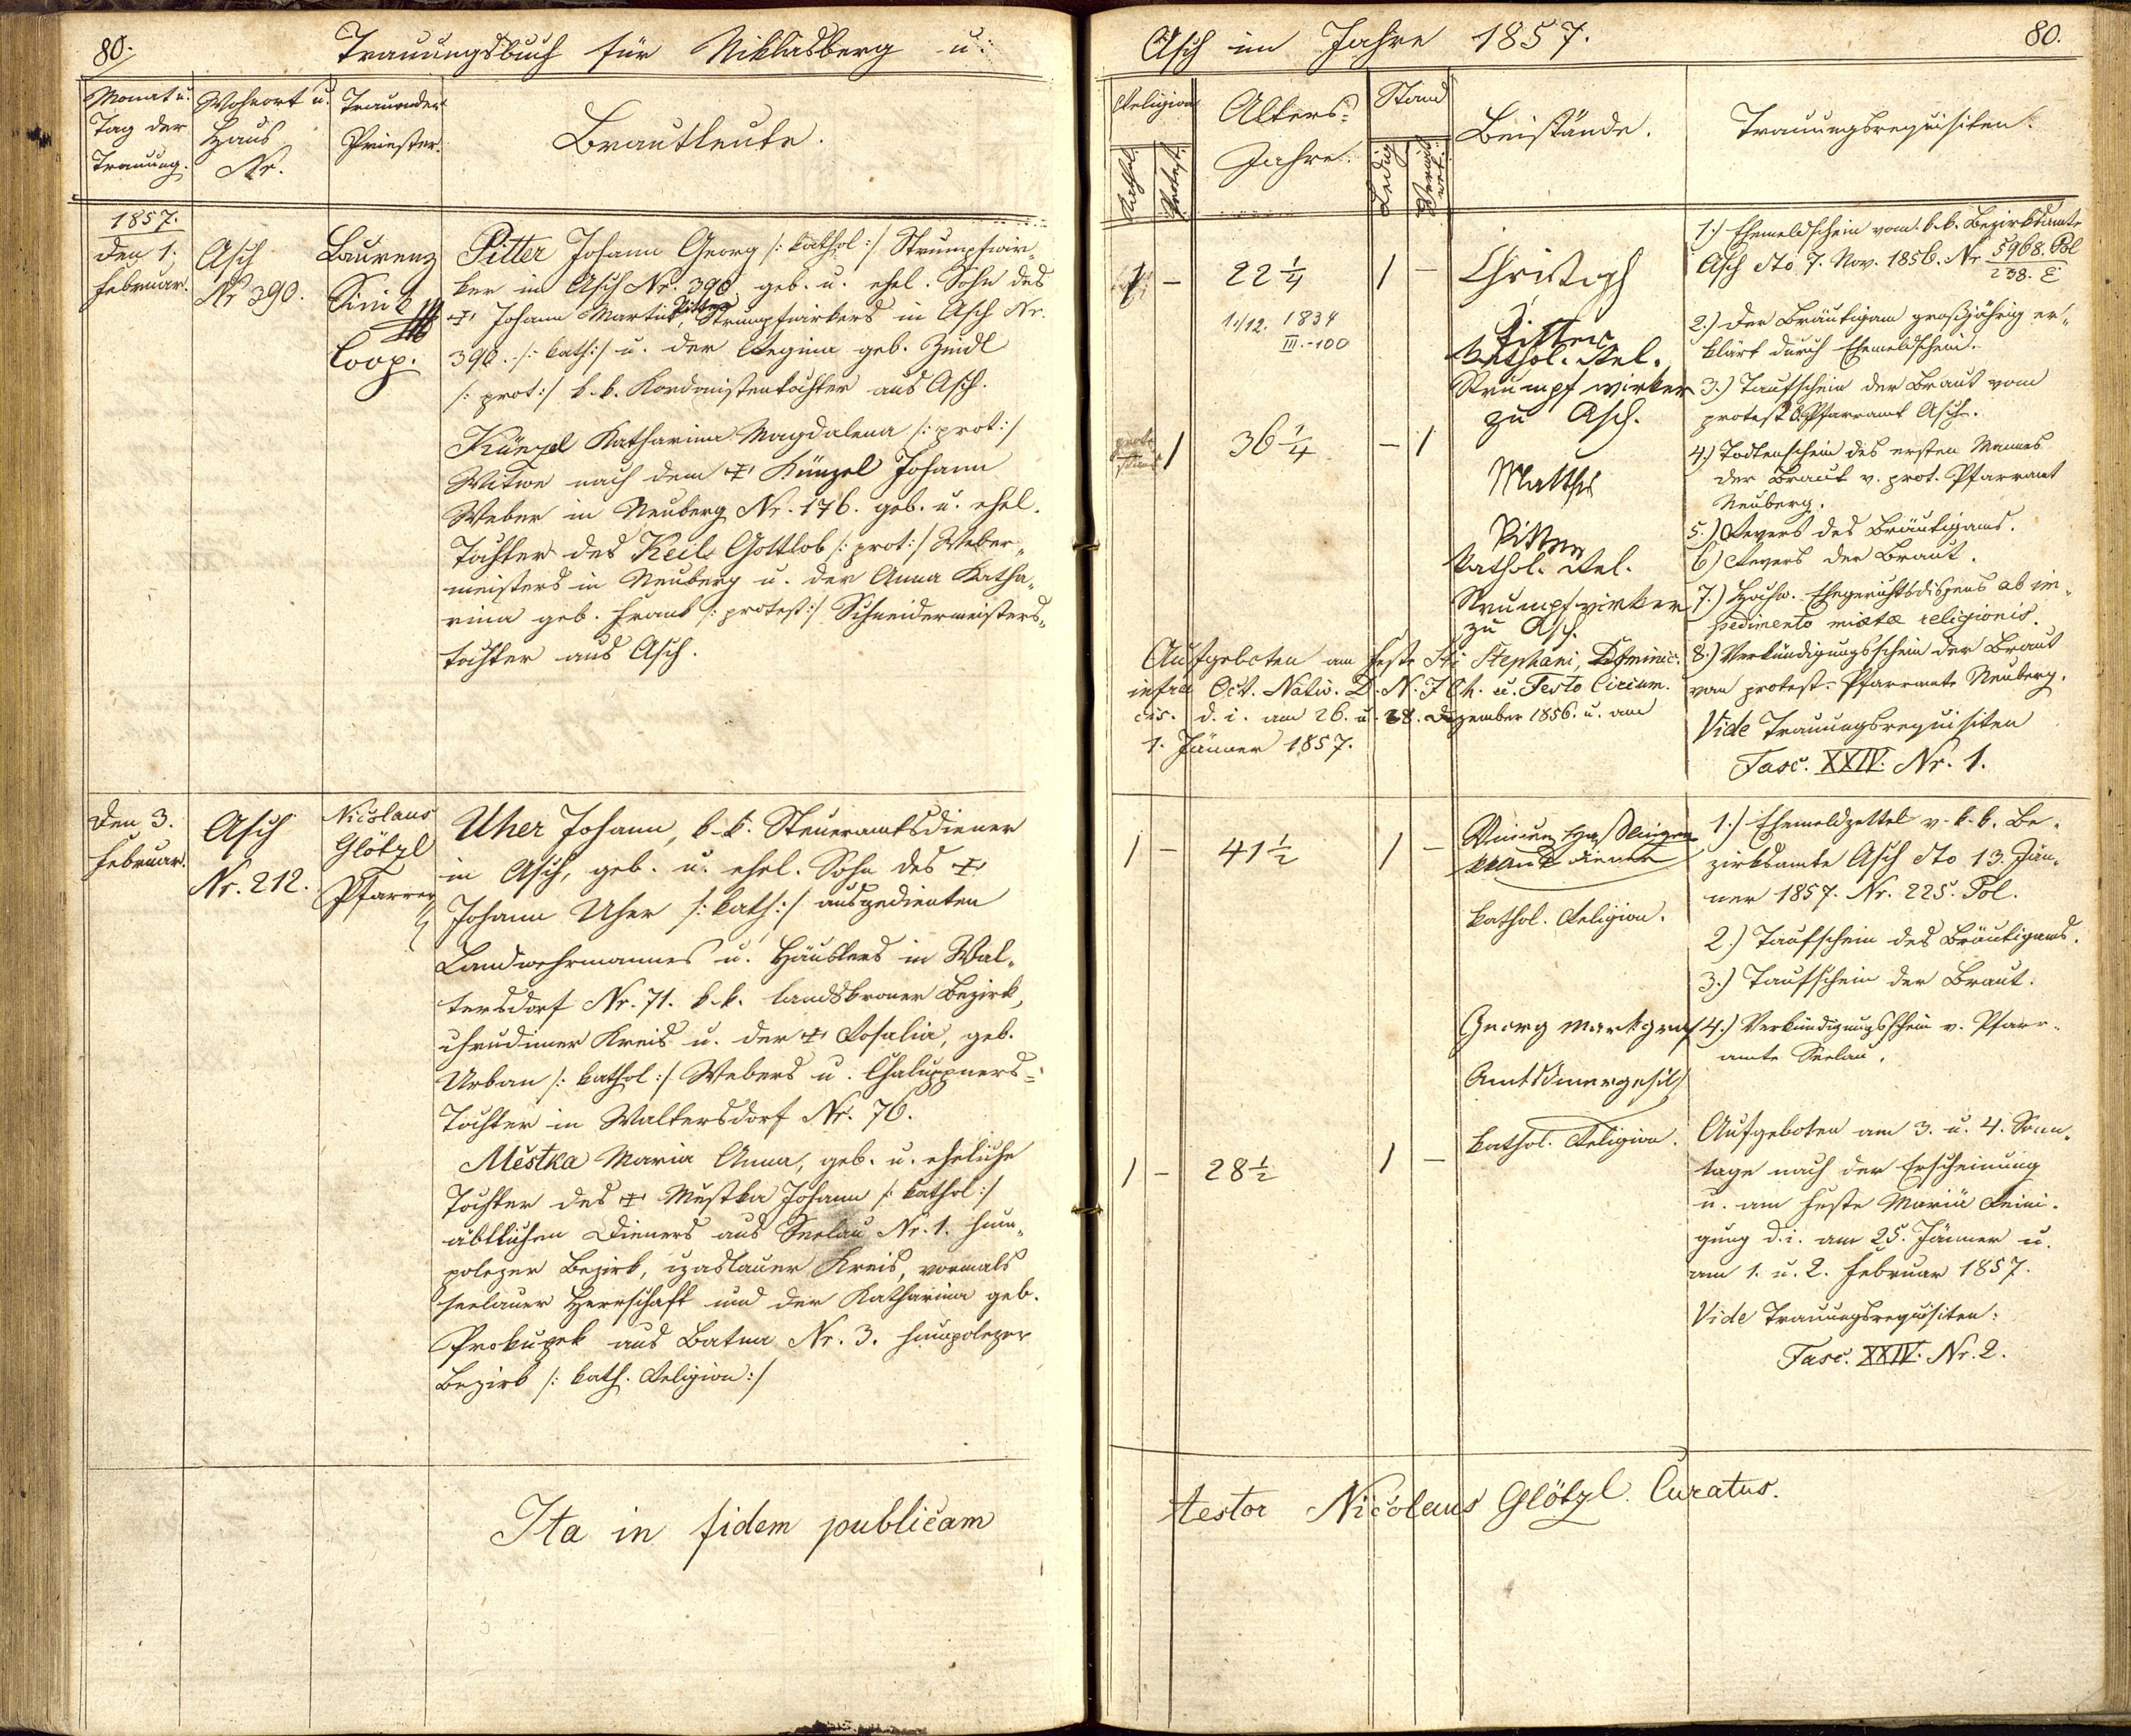 80.
Trauungsbuch für Niklasberg u.
Monat u.
Tag der
Trauung.
Wohnort u.
Haus
Nr.
Trauender
Priester.
Brautleute.
1857.
den 1.
Februar.
Asch
Nr 390.
Laurenz
Coop.
Pitter Johann Georg /: kathol :/ Strumpfwir„
ker in Asch Nr. 390 geb. u. ehel. Sohn des
† Johann Martin Pitter, Strumpfwirkers in Asch Nr.
390. /: kath :/ u. der Regina geb. Zindl
/: prot :/ k. k. Kordonistentochter aus Asch.
Künzel Katharina Magdalena /: prot :/
Witwe nach dem † Künzel Johann
Weber in Neuberg Nr. 176. geb. u. ehel.
Tochter des Keil Gottlob /: prot :/ Weber„
meisters in Neuberg u. der Anna Katha„
rina geb. Frank /: protest :/ Schneidermeisters„
tochter aus Asch.
den 3.
Februar.
Asch
Nr. 212.
Nicolaus
Glötzl
Pfarrer
Uher Johann, k. k. Steueramtsdiener
in Asch, geb. u. ehel. Sohn des †
Johann Uher /: kath :/ ausgedienten
Landwehrmannes u. Häuslers in Wal„
tersdorf Nr. 71. k. k. landskroner Bezirk,
chrudimer Kreis u. der † Rosalia, geb.
Urban /: kathol :/ Webers u. Chaluppners=
Tochter in Waltersdorf Nr. 76.
Městka Maria Anna, geb. u. eheliche
Tochter des † Městka Johann /: kathol :/
äbtlichen Dieners aus Seelau Nr. 1. hum„
polezer Bezirk, czaslauer Kreis, vormals
seelauer Herrschaft und der Katharina geb.
Prokupek aus Batna Nr. 3. humpolezer
Bezirk /: kath. Religion :/
Ita in fidem publicam
Asch im Jahre 1857.
80.
Religion
Kathol
Protest.
Alters=
Jahre.
Stand
Ledig
Verwit
wet.
Beistände.
Trauungsrequisiten.
1 –
22 1/4
11/12. 1834
III. - 100
1 –
Christoph
Pitter
Kathol. Rel.
Strumpfwirker
zu Asch.
1
36 1/4
– 1
Matthes
Pitter
Kathol. Rel.
Strumpfwirker
zu Asch.
1.) Ehemeldschein vom k. k. Bezirksamte
Asch dto 7. Nov. 1856. Nr 5968. Pol
238. E
2.) Der Bräutigam großjährig er„
klärt durch Ehemeldschein.
3.) Taufschein der Braut vom
protest. Pfarramt Asch.
4.) Todtenschein des ersten Mannes
der Braut v. prot. Pfarramt
Neuberg.
5.) Revers des Bräutigams.
6) Revers der Braut.
7.) Hochw. Ehegerichtsdispens ab im„
pedimento mixtæ religionis.
8.) Verkündigungsschein der Braut
vom protest. Pfarramte Neuberg.
Vide Trauungsrequisiten
Fasc. XXIV. Nr. 1.
Aufgeboten am Feste Sti Stephani, Dominic.
infra Oct. Nativ. D. N. J Ch. u. Festo Circum.
cis. d. i. am 26. u. 28. Dezember 1856. u. am
1. Jänner 1857.
1 –
41 1/2
1 –
kathol. Religion.
Georg Markgraf
kathol. Religion.
1 –
28 1/2
1 –
1.) Ehemeldzettel v. k. k. Be„
zirksamte Asch dto 13. Jän„
ner 1857. Nr. 225. Pol.
2.) Taufschein des Bräutigams.
3.) Taufschein der Braut.
4.) Verkündigungsschein v. Pfarr„
amte Seelau.
Aufgeboten am 3. u. 4. Sonn„
tage nach der Erscheinung
u. am Feste Mariä Reini„
gung d. i. am 25. Jänner u.
am 1. u. 2. Februar 1857.
Vide Trauungsrequisiten:
Fasc. XXIV. Nr. 2.
testor Nicolaus Glötzl. Curatus.